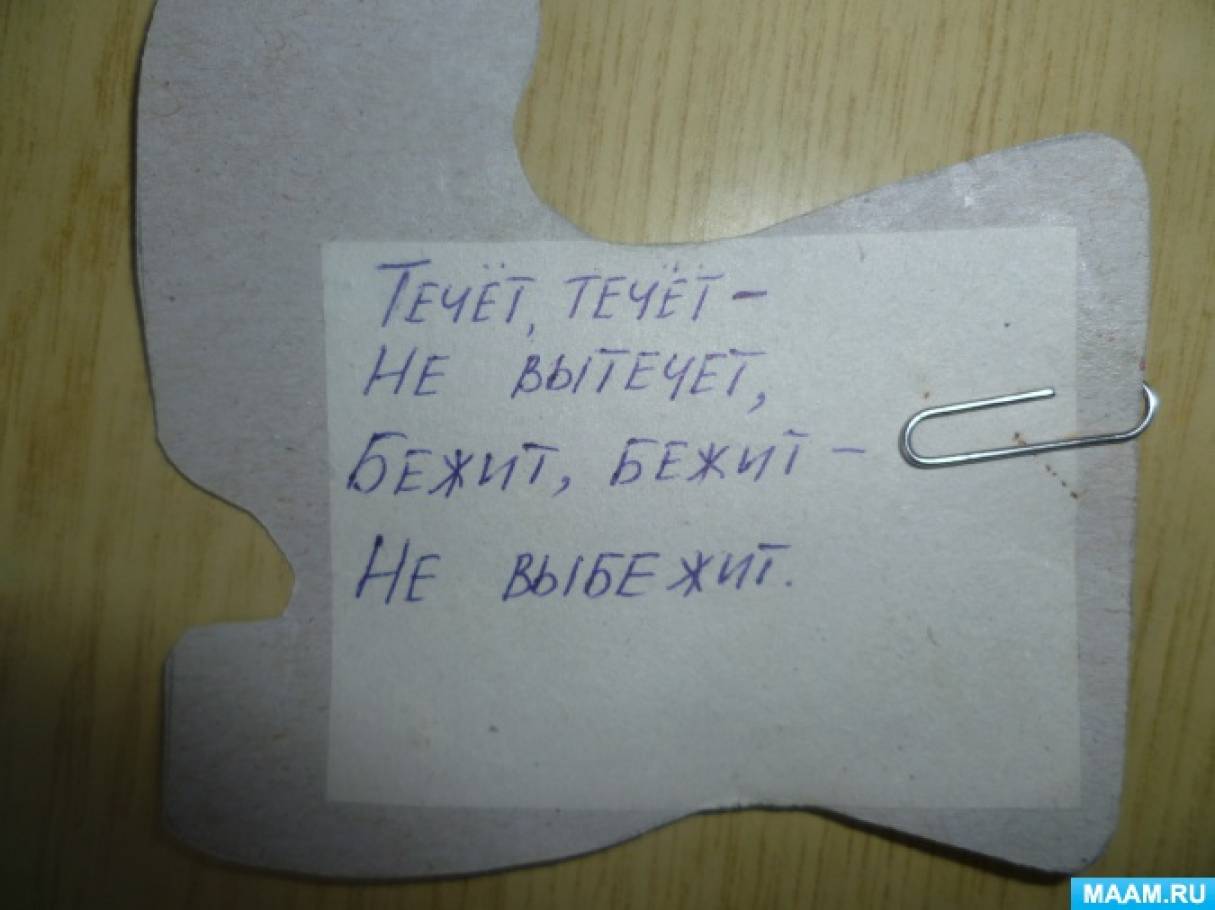 Течёт, течёт -
Не вытечет,
Бежит, бежит -
Не выбежит.
MAAM.RU